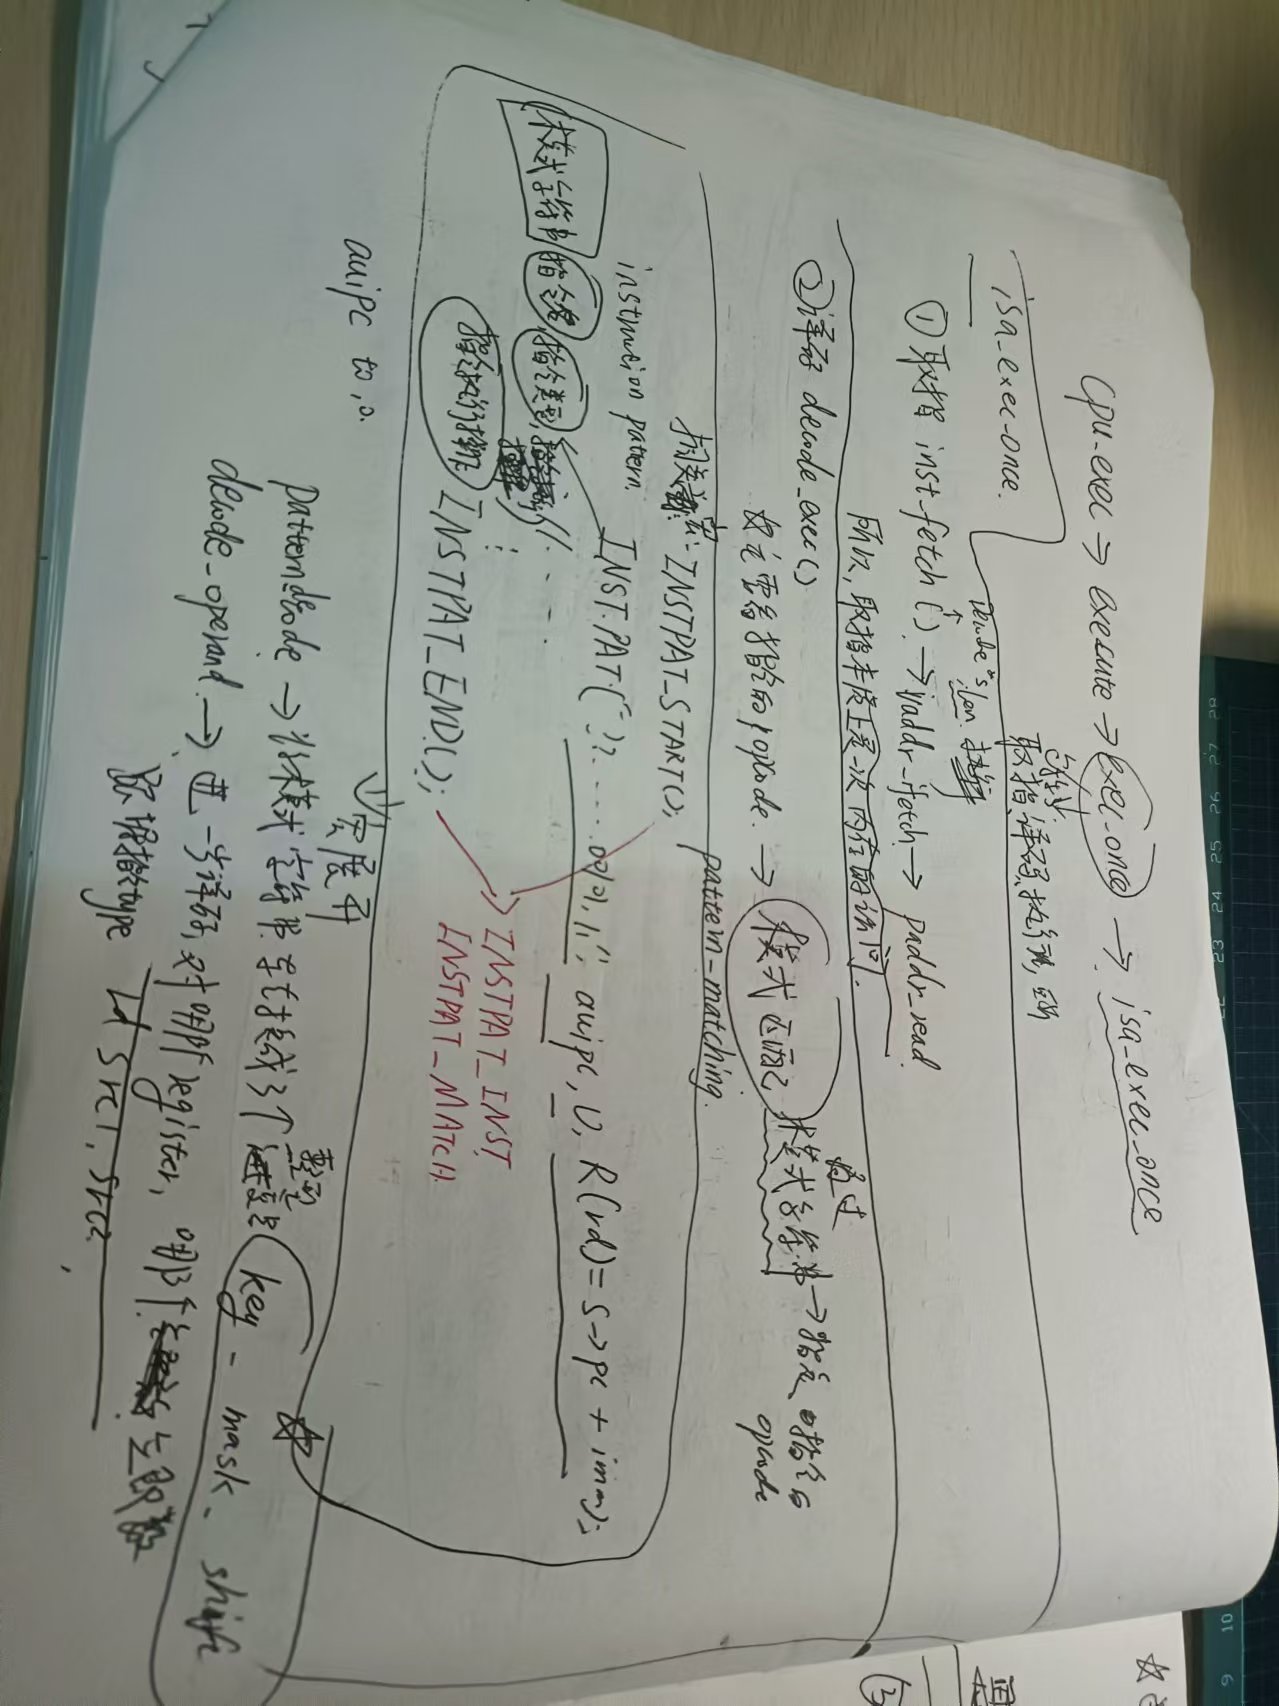 cpu_exec → execute → exec_once → isa_exec_once
包括
取指、译码、执行
isa_exec_once.
Decode *s
① 取指 inst_fetch() → vaddr_ifetch → paddr_read
所以, 取指本质上是一次内存的访问.
② 译码 decode_exec()
主要看指令的opcode. → 模式匹配 通过模式字符串 → 指定指令的opcode
pattern-matching.
相关宏: INSTPAT_START();
instruction pattern.
INSTPAT("??.....00101 11", auipc, U, R(rd)=s→pc + imm);
(模式字符串, 指令名, 指令类型,
指令执行操作)
INSTPAT_END();
INSTPAT_INST
INSTPAT_MATCH
auipc t0,0.
宏展开
pattern_decode → 将模式字符串转换成3个整型变量 key - mask - shift
decode_operand → 进一步译码, 对哪个register, 哪个立即数
跟据指令type rd src1, src2.
③